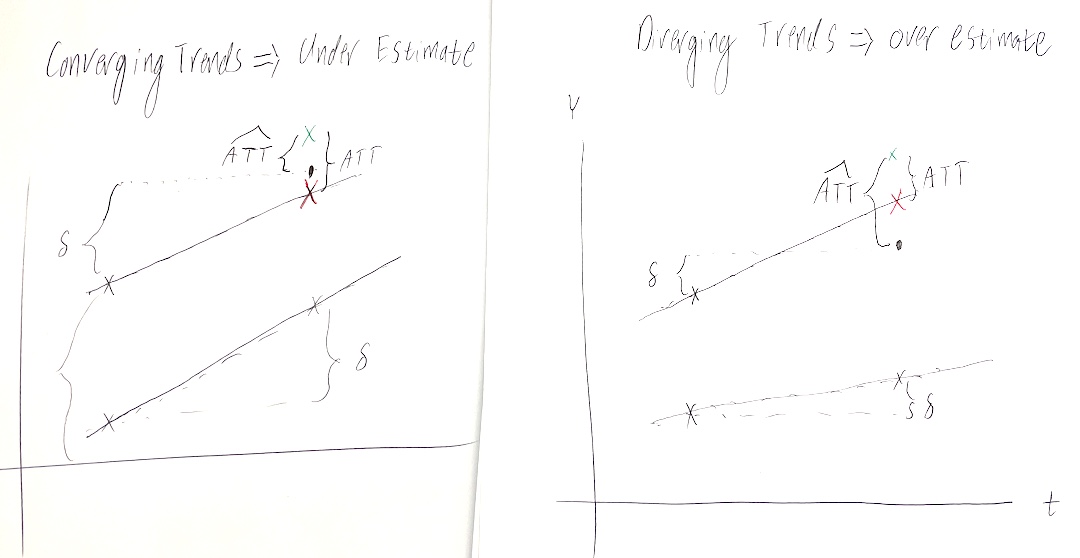 Converging Trends => Under Estimate
ATT
ATT
δ
δ
Diverging Trends => over estimate
Y
ATT
ATT
δ
δ
t